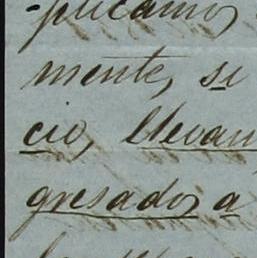 -plicamos
mente, si
cio, llevan
gresados a